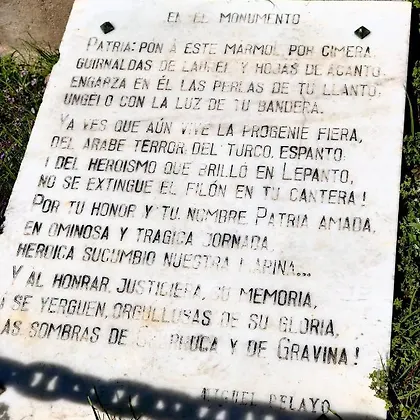 EN EL MONUMENTO
PATRIA: PON Á ESTE MARMOL POR CIMERA
GUIRNALDAS DE LAUREL Y HOJAS DE ACANTO.
ENGARZA EN ÉL LAS PERLAS DE TU LLANTO;
UNGELO CON LA LUZ DE TU BANDERA.
YA VES QUE AÚN VIVE LA PROGENIE FIERA,
DEL ARABE TERROR, DEL TURCO, ESPANTO;
¡ DEL HEROISMO QUE BRILLÓ EN LEPANTO,
NO SE EXTINGUE EL FILÓN EN TU CANTERA !
POR TU HONOR Y TU NOMBRE PATRIA AMADA,
EN OMINOSA Y TRAGICA JORNADA
HEROICA SUCUMBIO NUESTRA MARINA...
Y AL HONRAR, JUSTICIERA, SU MEMORIA,
SE YERGUEN, ORGULLOSAS DE SU GLORIA,
LAS SOMBRAS DE CHURRUCA Y DE GRAVINA !
MIGUEL PELAYO